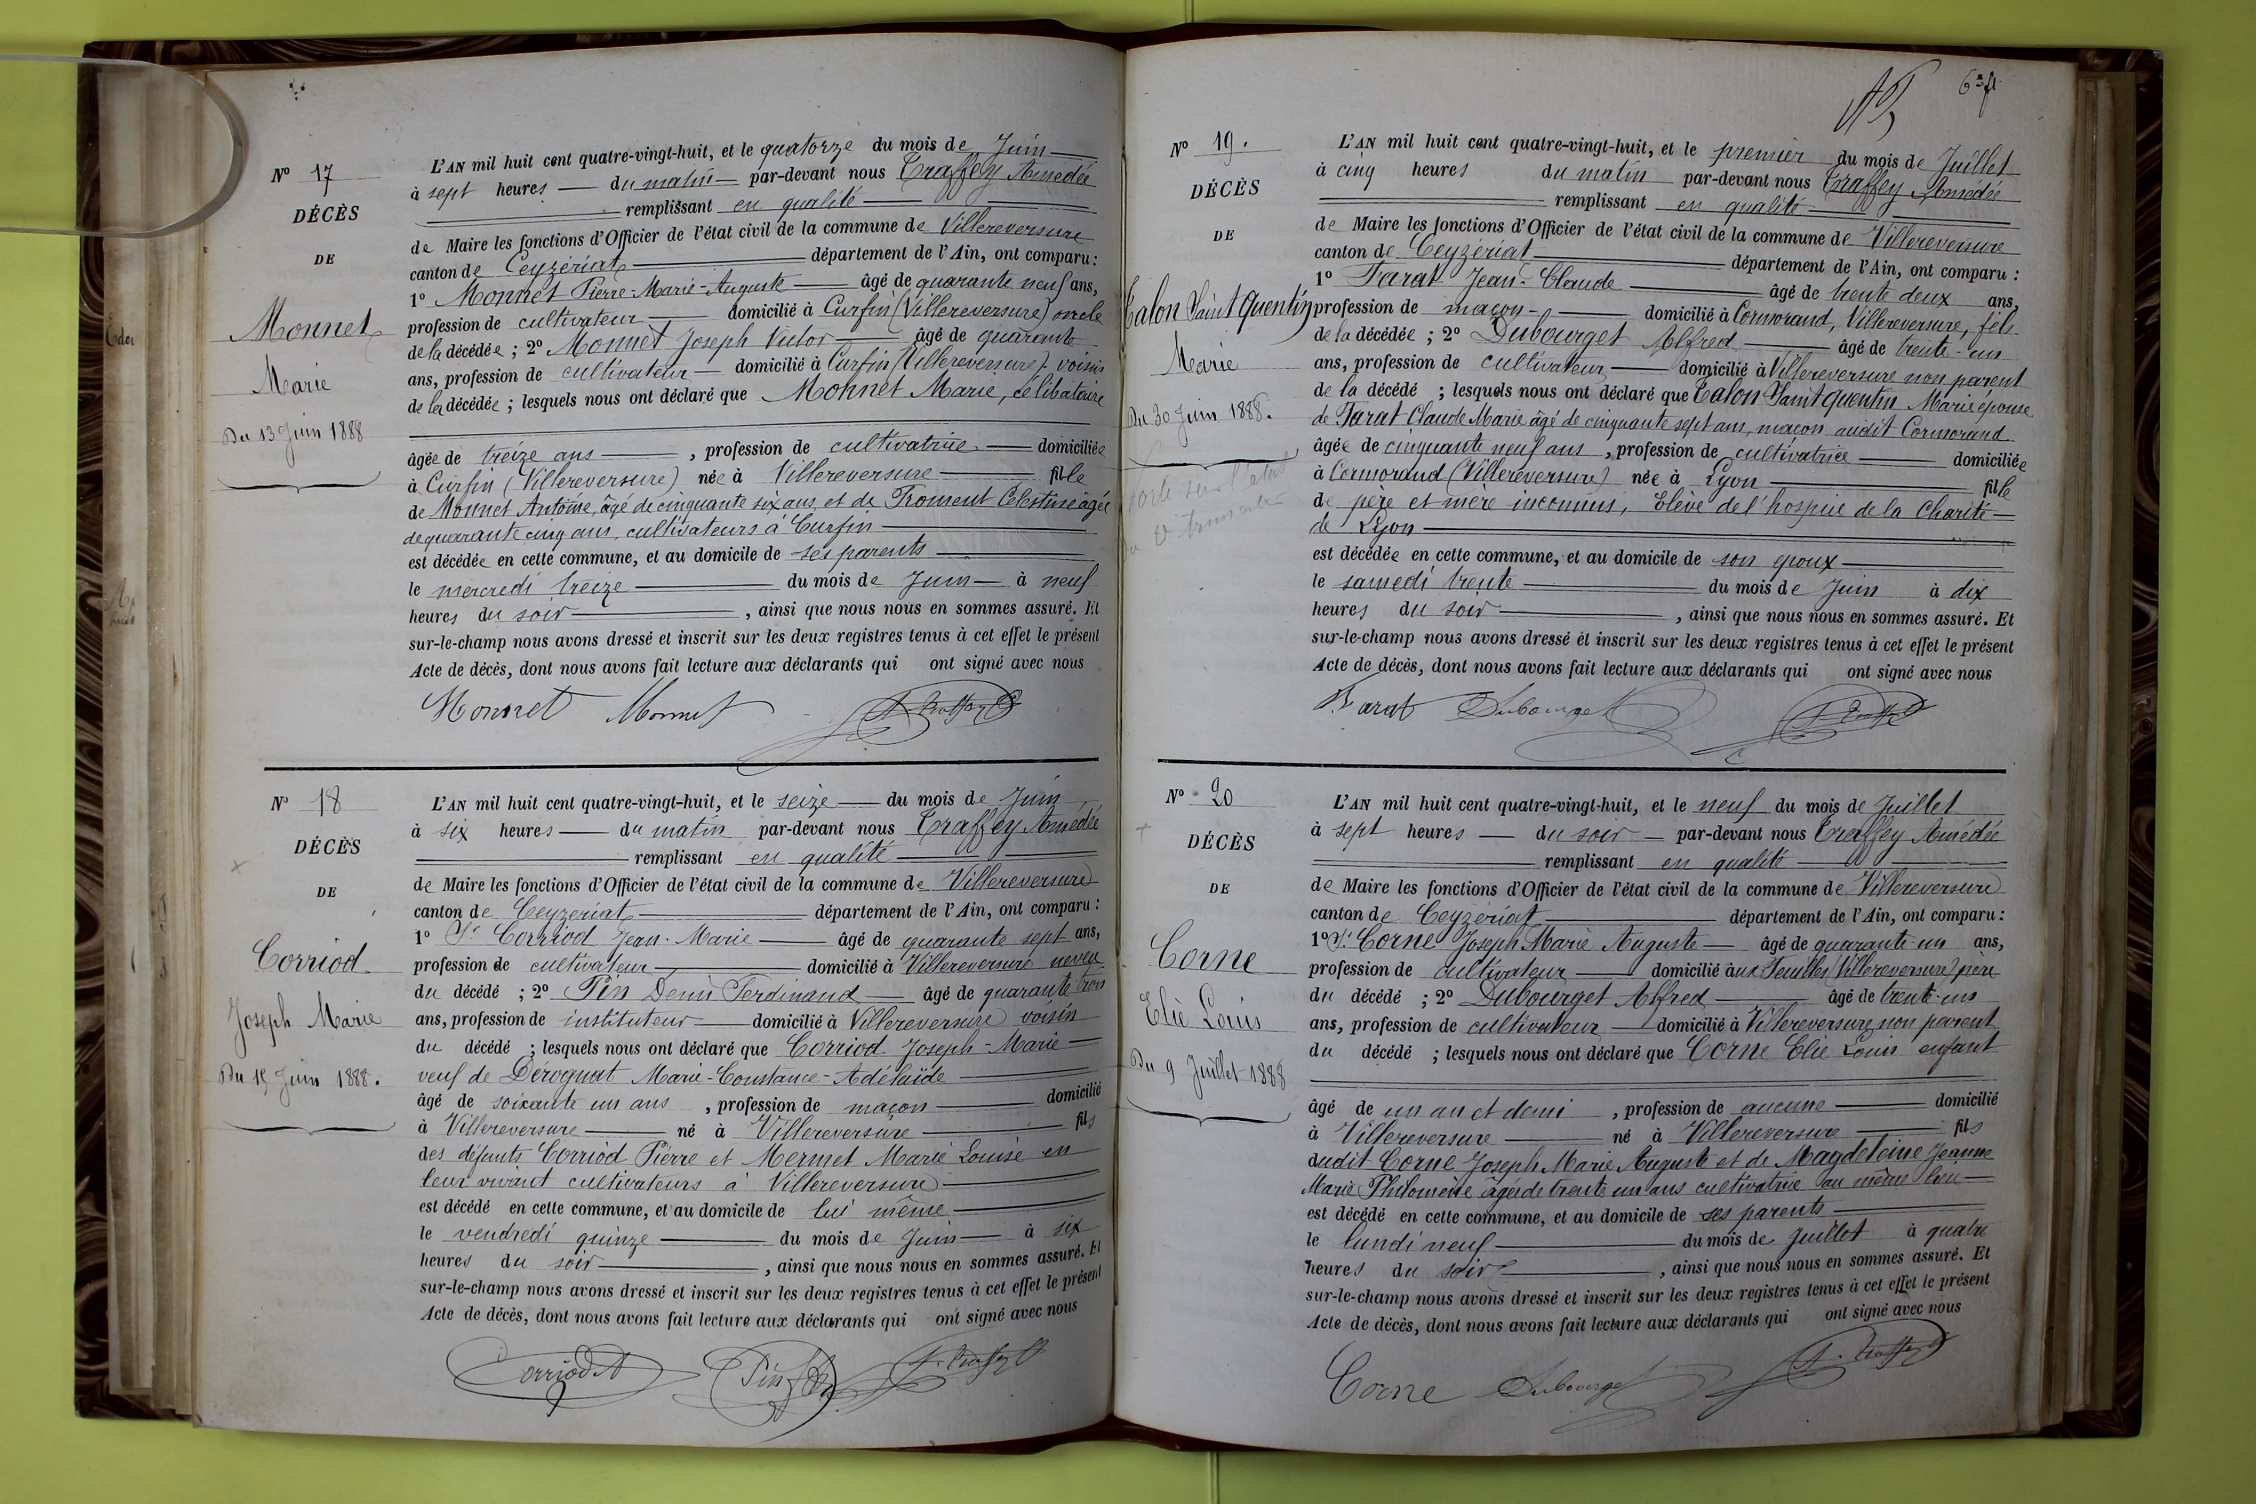 Nº 17
DÉCÈS
DE
Monnet
Marie
Du 13 Juin 1888
L'AN mil huit cent quatre-vingt-huit, et le quatorze du mois de Juin
à sept heures du matin par-devant nous Traffey Amédée
remplissant en qualité
de Maire les fonctions d'Officier de l'état civil de la commune de Villereversure
canton de Ceyzériat département de l'Ain, ont comparu :
1º Monnet Pierre-Marie-Auguste âgé de quarante neuf ans,
profession de cultivateur domicilié à Curfin (Villereversure) oncle
de la décédée ; 2º Monnet Joseph Victor âgé de quarante
ans, profession de cultivateur domicilié à Curfin (Villereversure) voisin
de la décédée ; lesquels nous ont déclaré que Monnet Marie, célibataire
âgée de treize ans , profession de cultivatrice domiciliée
à Curfin (Villereversure) née à Villereversure fille
de Monnet Antoine, âgé de cinquante six ans et de Froment Célestine âgée
de quarante cinq ans, cultivateurs à Curfin
est décédée en cette commune, et au domicile de ses parents
le mercredi treize du mois de Juin à neuf
heures du soir , ainsi que nous nous en sommes assuré. Et
sur-le-champ nous avons dressé et inscrit sur les deux registres tenus à cet effet le présent
Acte de décès, dont nous avons fait lecture aux déclarants qui ont signé avec nous
Monnet Monnet A. Traffey
Nº 18
DÉCÈS
DE
Corriod
Joseph Marie
Du 15 Juin 1888.
L'AN mil huit cent quatre-vingt-huit, et le seize du mois de Juin
à six heures du matin par-devant nous Traffey Amédée
remplissant en qualité
de Maire les fonctions d'Officier de l'état civil de la commune de Villereversure
canton de Ceyzeriat département de l'Ain, ont comparu :
1º Sr Corriod Jean-Marie âgé de quarante sept ans,
profession de cultivateur domicilié à Villereversure neveu
du décédé ; 2º Pin Denis Ferdinand âgé de quarante trois
ans, profession de instituteur domicilié à Villereversure voisin
du décédé ; lesquels nous ont déclaré que Corriod Joseph-Marie
veuf de Dérognat Marie-Constance-Adélaïde
âgé de soixante un ans , profession de maçon domicilié
à Villereversure né à Villereversure fils
des défunts Corriod Pierre et Mermet Marie Louise en
leur vivant cultivateurs à Villereversure
est décédé en cette commune, et au domicile de lui même
le vendredi quinze du mois de Juin à six
heures du soir , ainsi que nous nous en sommes assuré. Et
sur-le-champ nous avons dressé et inscrit sur les deux registres tenus à cet effet le présent
Acte de décès, dont nous avons fait lecture aux déclarants qui ont signé avec nous
Corriod Pin A. Traffey
Nº 19.
DÉCÈS
DE
Talon Saint Quentin
Marie
Du 30 Juin 1888.
L'AN mil huit cent quatre-vingt-huit, et le premier du mois de Juillet
à cinq heures du matin par-devant nous Traffey Amédée
remplissant en qualité
de Maire les fonctions d'Officier de l'état civil de la commune de Villereversure
canton de Ceyzériat département de l'Ain, ont comparu :
1º Tarat Jean-Claude âgé de trente deux ans,
profession de maçon domicilié à Cormorand, Villereversure, fils
de la décédée ; 2º Dubourget Alfred âgé de trente-un
ans, profession de cultivateur domicilié à Villereversure non parent
de la décédé ; lesquels nous ont déclaré que Talon Saint Quentin Marie épouse
de Tarat Claude Marie âgé de cinquante sept ans, maçon audit Cormorand
âgée de cinquante neuf ans , profession de cultivatrice domiciliée
à Cormorand (Villereversure) née à Lyon fille
de père et mère inconnus, Elève de l'hospice de la Charité
de Lyon
est décédée en cette commune, et au domicile de son époux
le samedi trente du mois de Juin à dix
heures du soir , ainsi que nous nous en sommes assuré. Et
sur-le-champ nous avons dressé et inscrit sur les deux registres tenus à cet effet le présent
Acte de décès, dont nous avons fait lecture aux déclarants qui ont signé avec nous
Tarat Dubourget A. Traffey
Nº 20
DÉCÈS
DE
Corne
Elie Louis
Du 9 Juillet 1888
L'AN mil huit cent quatre-vingt-huit, et le neuf du mois de Juillet
à sept heures du soir par-devant nous Traffey Amédée
remplissant en qualité
de Maire les fonctions d'Officier de l'état civil de la commune de Villereversure
canton de Ceyzériat département de l'Ain, ont comparu :
1º Sr Corne Joseph Marie Auguste âgé de quarante-un ans,
profession de cultivateur domicilié aux Feuilles (Villereversure) père
du décédé ; 2º Dubourget Alfred âgé de trente-un
ans, profession de cultivateur domicilié à Villereversure non parent
du décédé ; lesquels nous ont déclaré que Corne Elie Louis enfant
âgé de un an et demi , profession de aucune domicilié
à Villereversure né à Villereversure fils
dudit Corne Joseph Marie Auguste et de Magdeleine Jeanne
Marie Philomène âgée de trente un ans cultivatrice au même lieu
est décédé en cette commune, et au domicile de ses parents
le lundi neuf du mois de Juillet à quatre
heures du soir , ainsi que nous nous en sommes assuré. Et
sur-le-champ nous avons dressé et inscrit sur les deux registres tenus à cet effet le présent
Acte de décès, dont nous avons fait lecture aux déclarants qui ont signé avec nous
Corne Dubourget A. Traffey